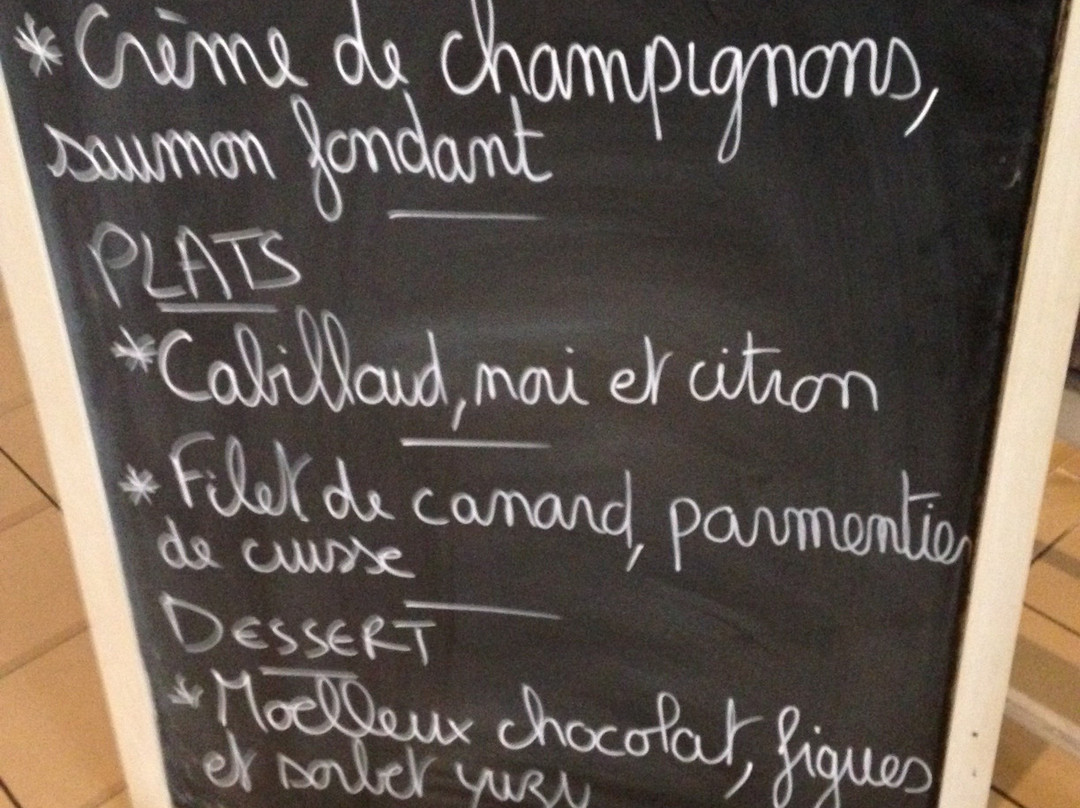 * Crème de champignons,
saumon fondant
PLATS
* Cabillaud, noix et citron
* Filet de canard, parmentier
de cuisse
DESSERT
* Moelleux chocolat, figues
et sorbet yuzu